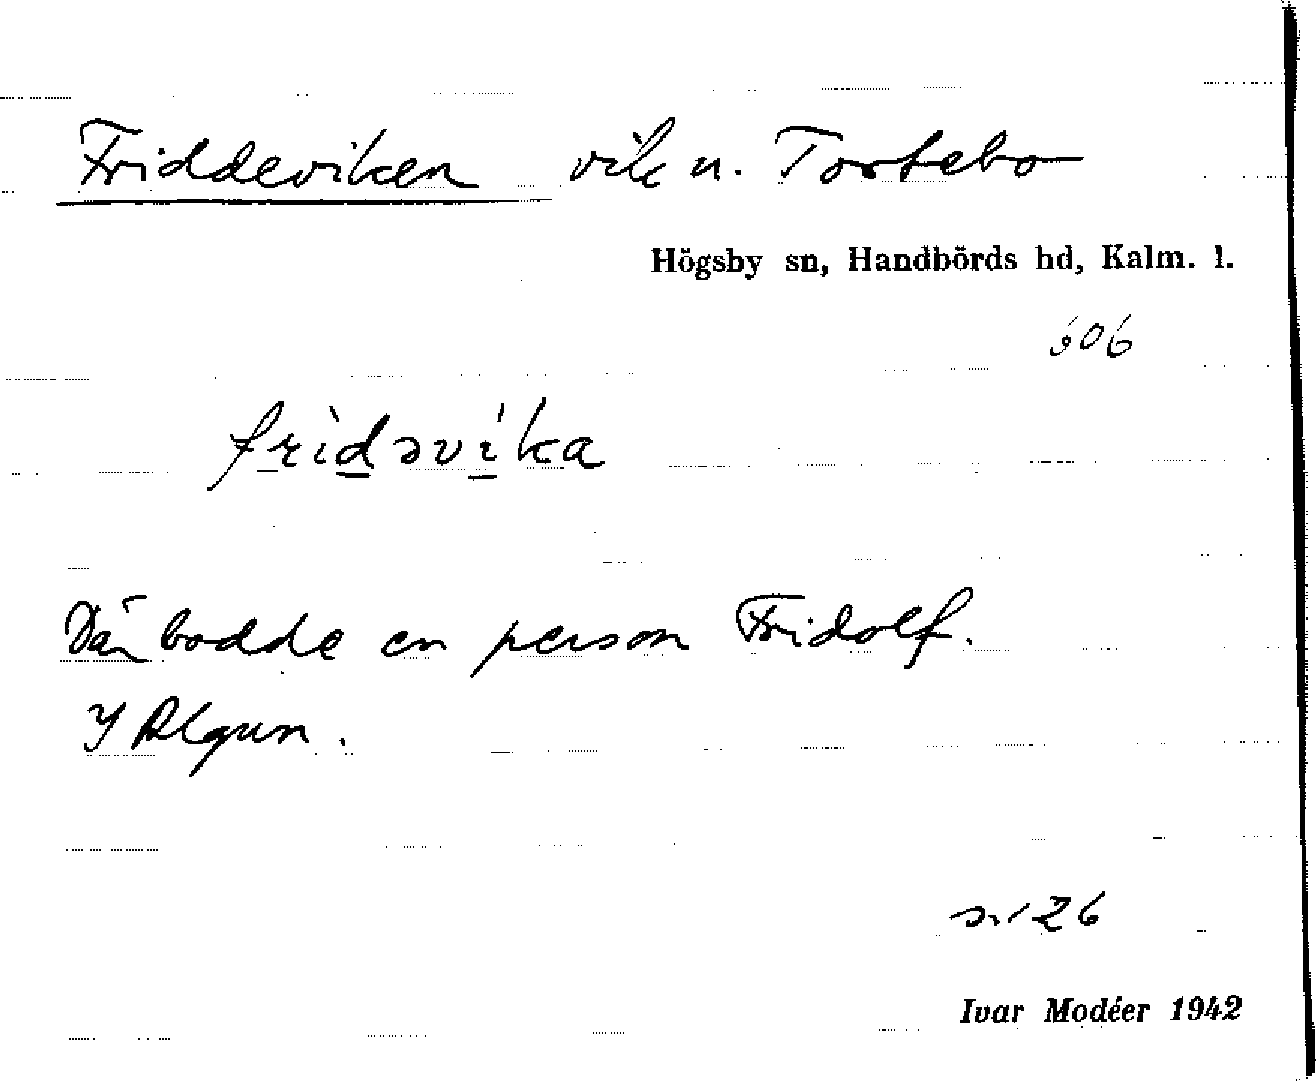 Friddeviken vik u. Tortebo
Högsby sn, Handbörds hd, Kalm. l.
606
frìdəvíka
Där bodde en person Fridolf.
I Algun.
s. 126
Ivar Modéer 1942